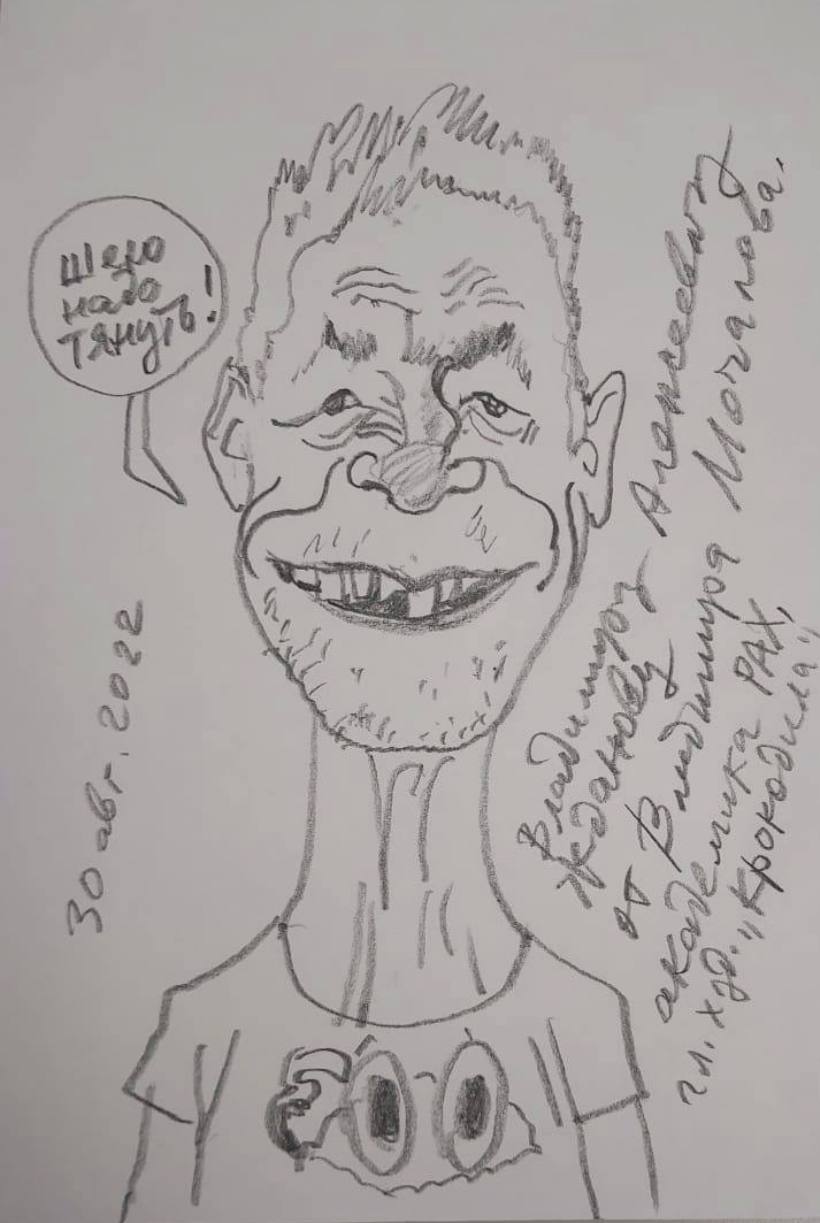 Шею
надо
тянуть!
30 авг. 2022
Владимиру Алексеевичу
Жданову
от Владимира Мочалова,
академика РАХ,
гл. худ. „Крокодила"